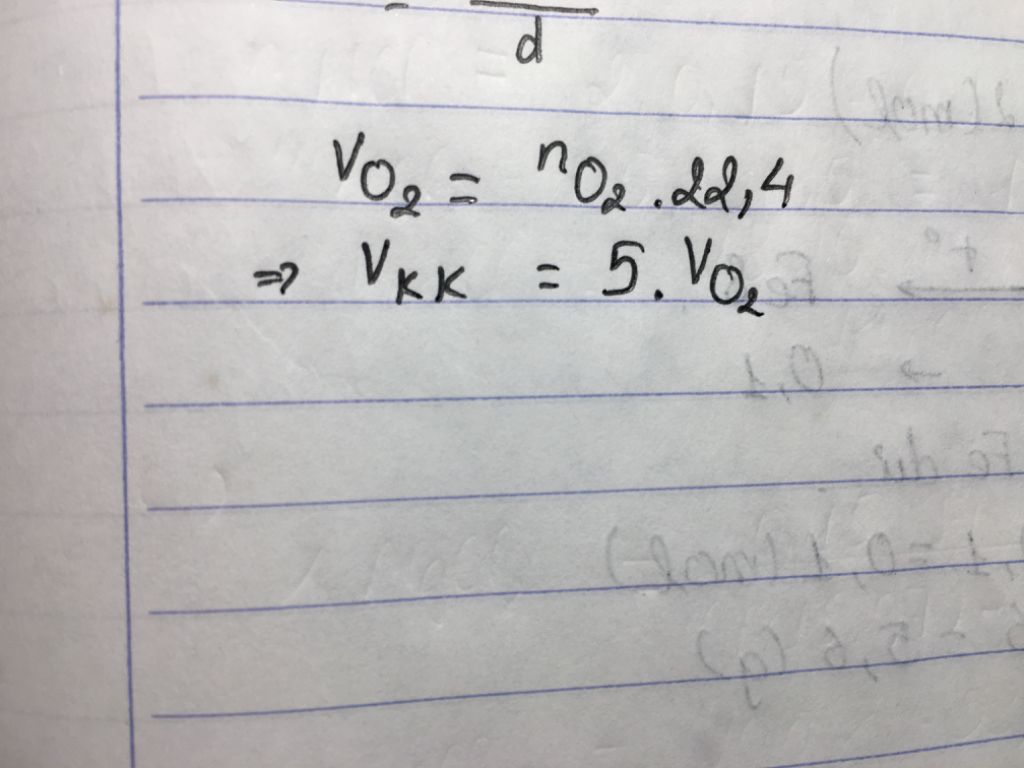 d
V_{O_2} = n_{O_2} . 22,4
=> V_{KK} = 5 . V_{O_2}